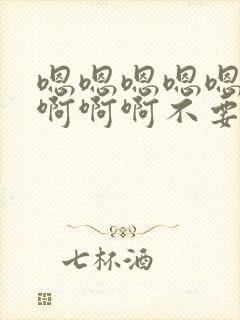 嗯嗯嗯嗯嗯
啊啊啊不要
七杯酒